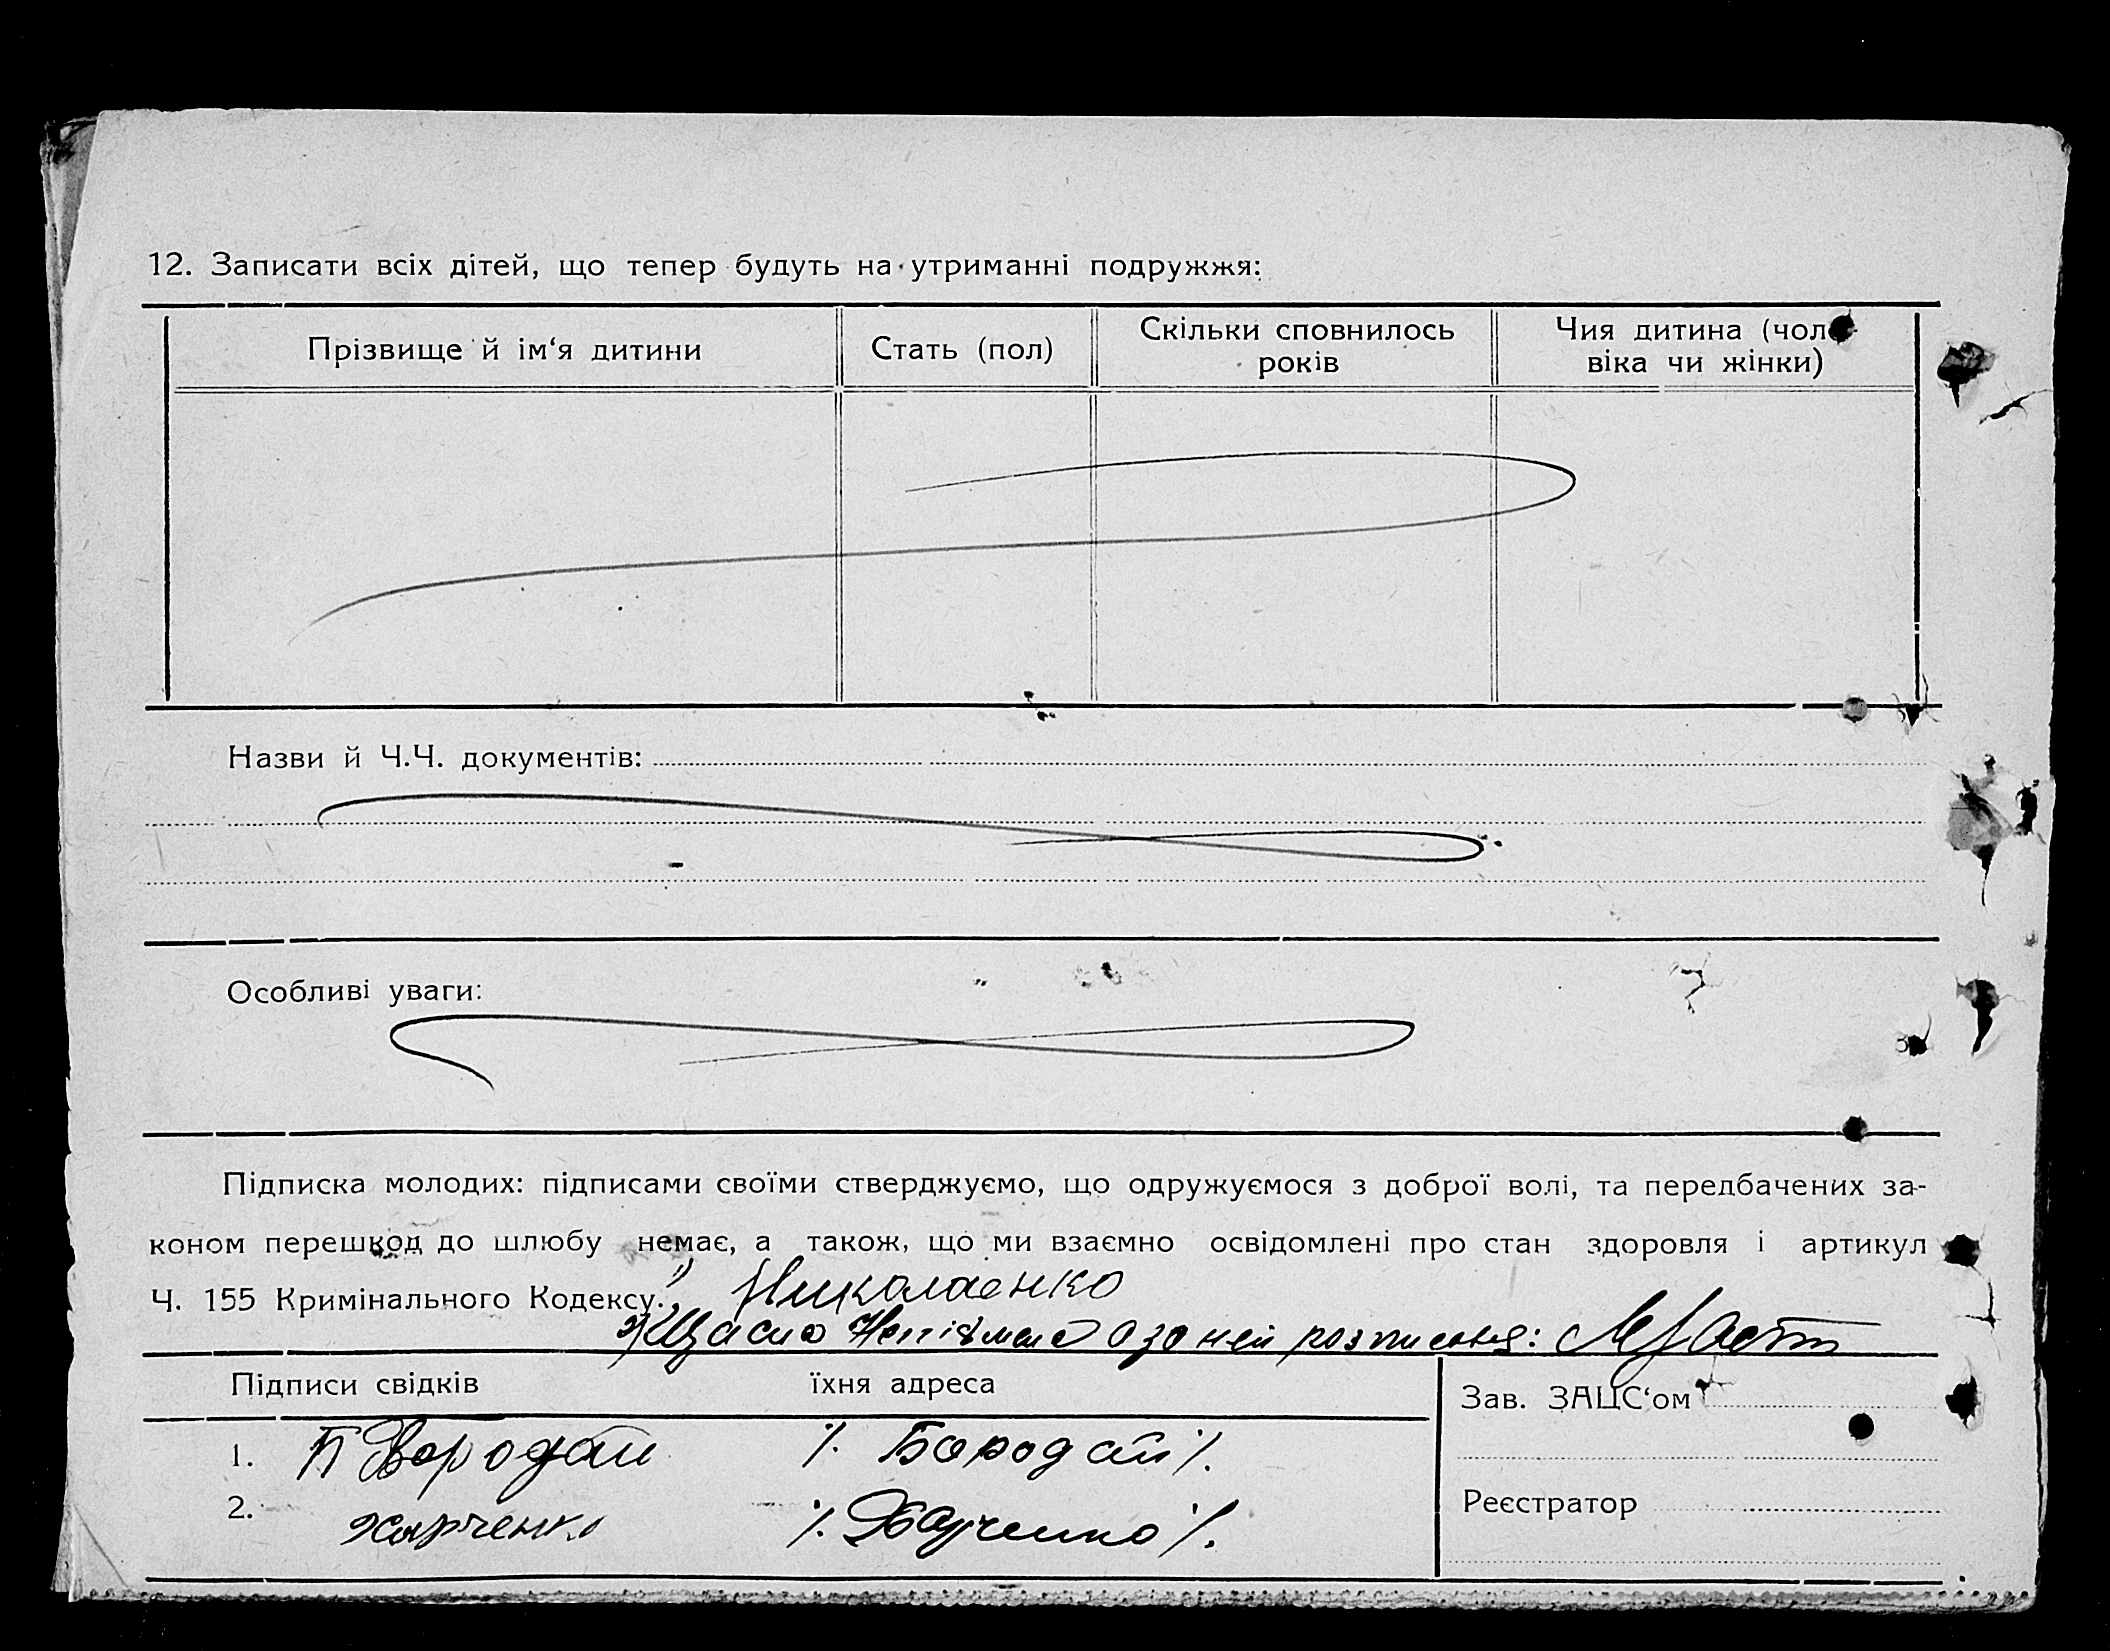 12. Записати всіх дітей, що тепер будуть на утриманні подружжя:
Прізвище й ім‘я дитини
Стать (пол)
Скільки сповнилось
років
Чия дитина (чол
віка чи жінки)
Назви й Ч.Ч. документів:
Особливі уваги:
Підписка молодих: підписами своїми стверджуємо, що одружуємося з доброї волі, та передбачених за-
коном перешкод до шлюбу немає, а також, що ми взаємно освідомлені про стан здоровля і артикул
Ч. 155 Кримінального Кодексу.
1) Николаенко
2)
Підписи свідків
їхня адреса
Зав. ЗАЦС‘ом
1. П Бородай /. Бородай /.
2. Харченко /. Харченко /.
Реєстратор